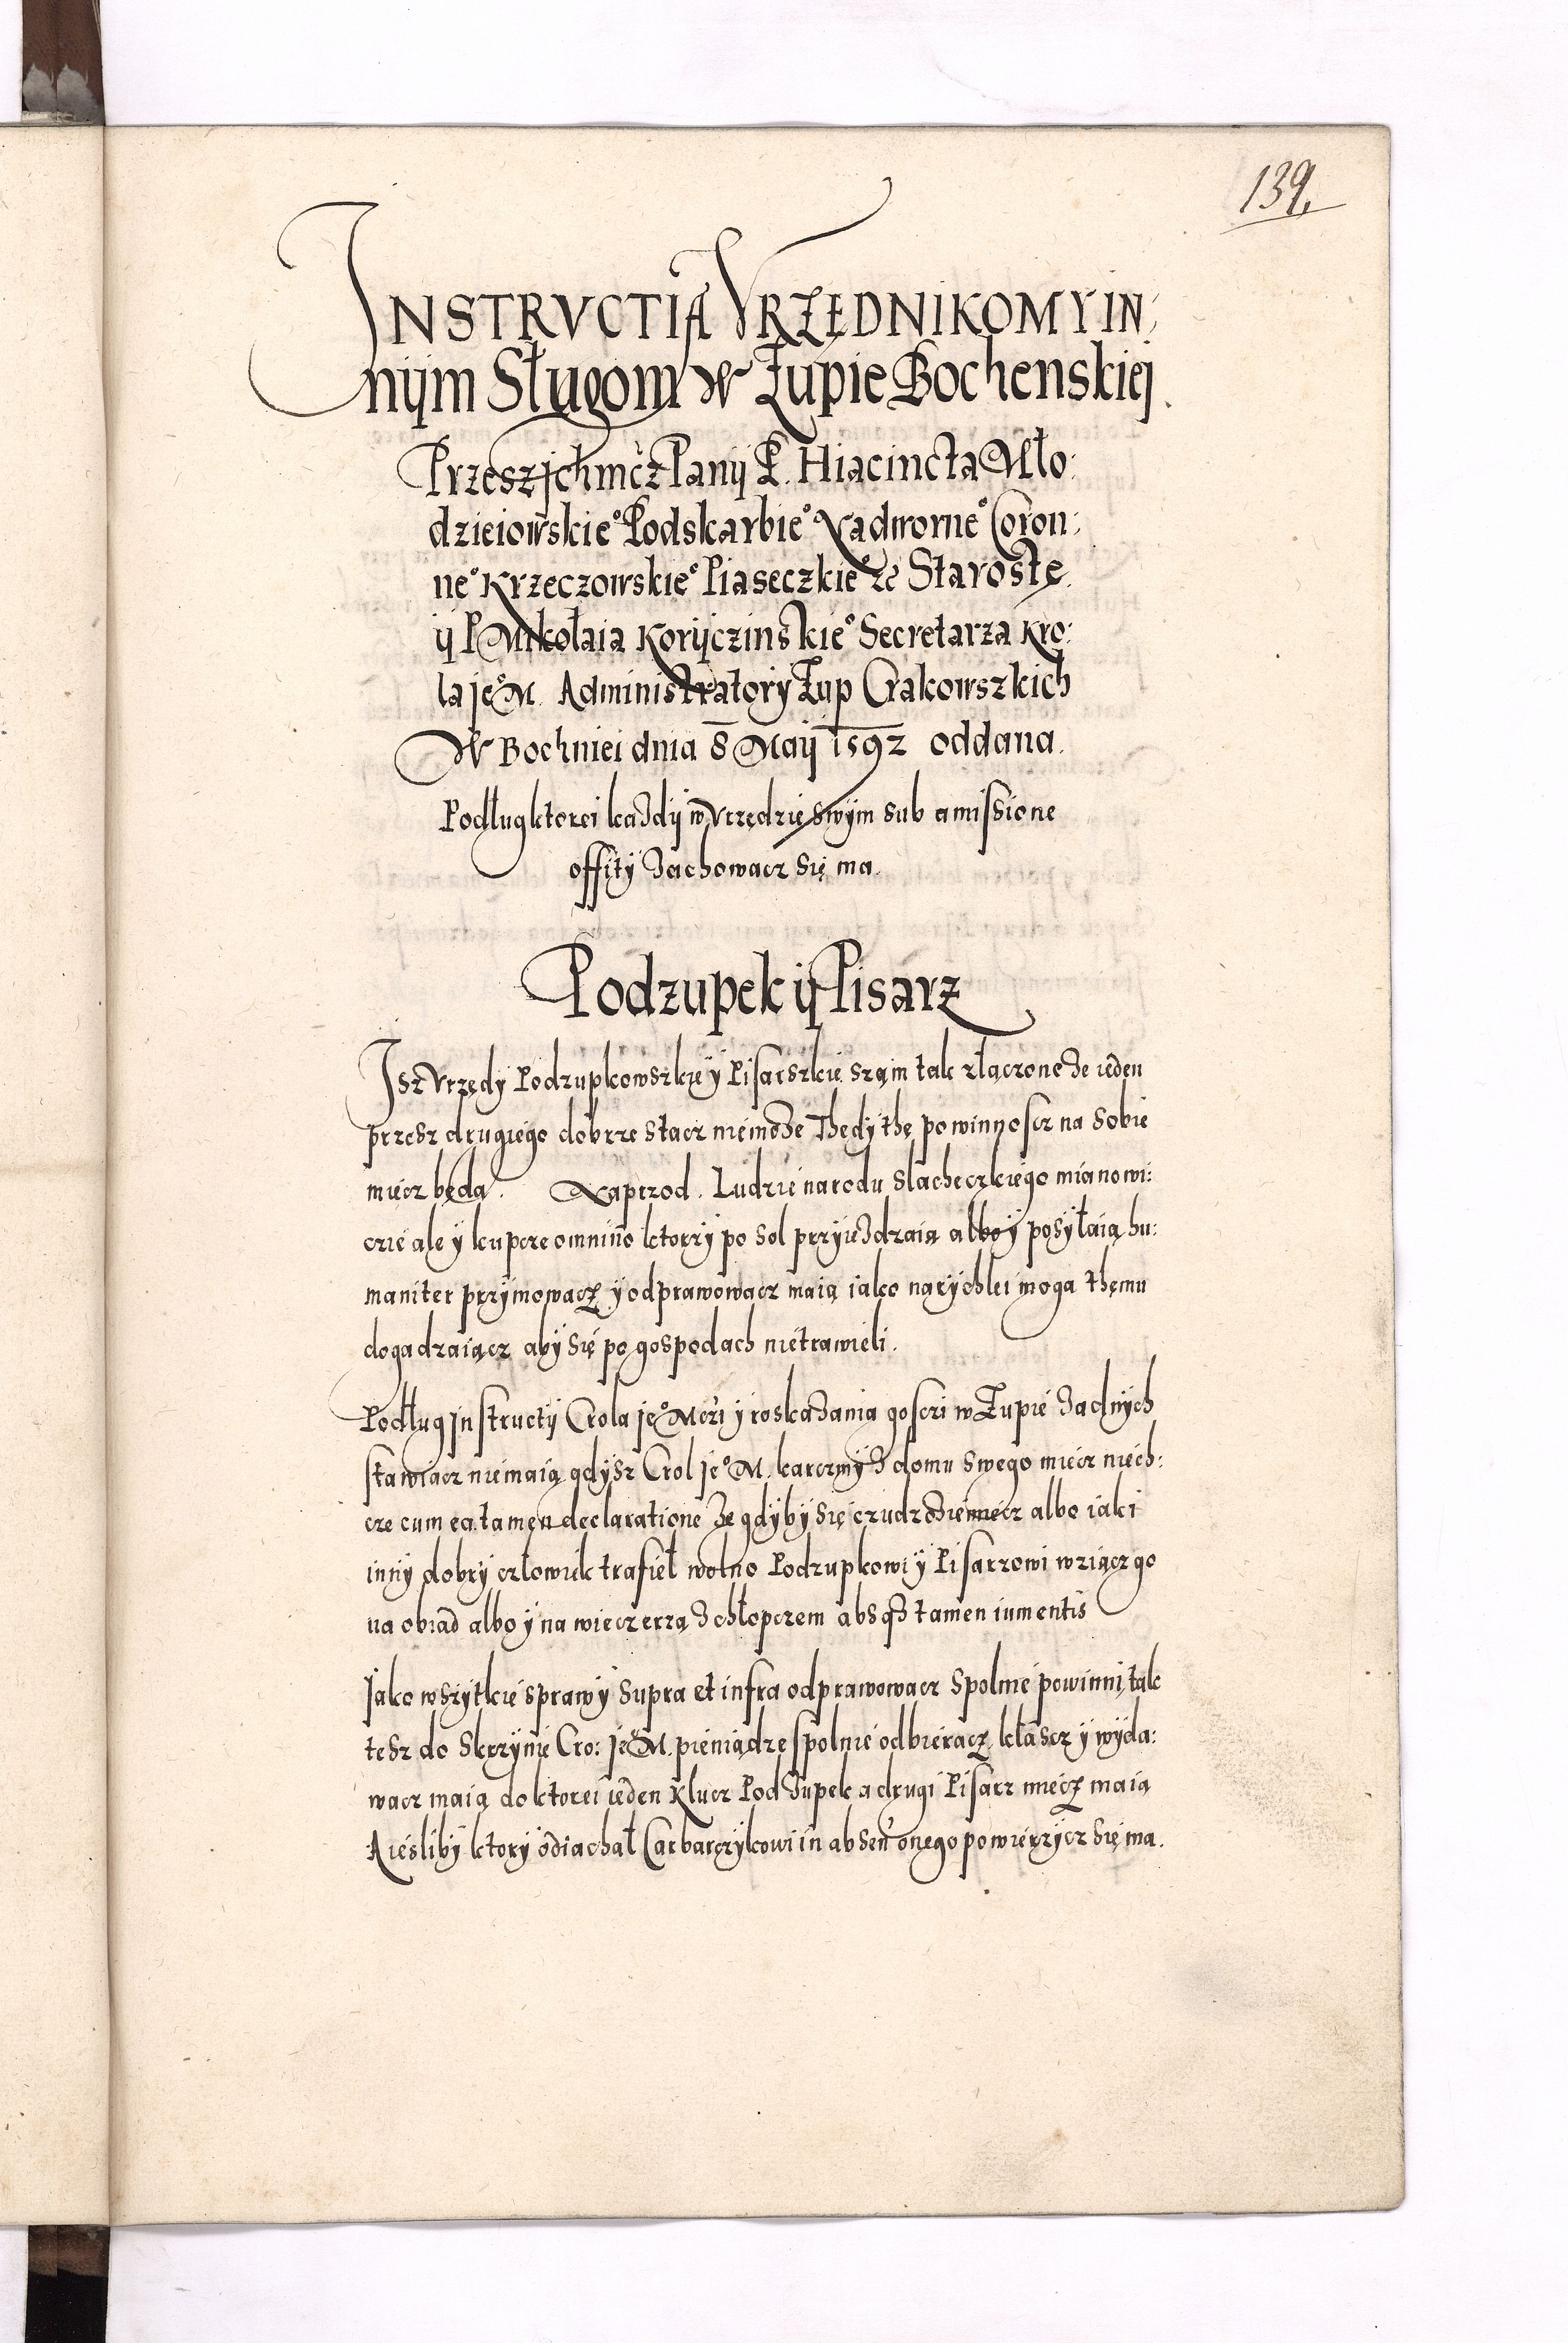 139.
INSTRVCTIA VRZĘDNIKOM Y IN:
nijm Sługom w Żupie Bochenskiej
Przesz ichmcz Panij P. Hiacincta Mło:
dzieiowskie° Podskarbie° Nadworne° Coron:
ne° Krzeczowskie° Piaseczkie° ec Starostę
ij P Mikołaia Korijczinskie° Secretarza Kro:
la je° M. Administratory Żup Crakowszkich
W Bochniei dnia 8 Maij 1592 oddana.
Podług ktorei każdij w Vrzędzie swym sub amissione
offity zachowacz się ma.
Podzupek ij Pisarz
Isz Vrzędy Podzupkowszkie y Pisarszkie szą in tak złączone że ieden
przesz drugiego dobrze stacz niemoże Thedy thę powinnoscz na sobie
miecz będą. Naprzod. Ludzie narodu slacheczkiego mianowi:
czie ale y kupcze omnino ktorzy po sol przyieżdzaią albo y posyłaią hu:
maniter przymowacz y odprawowacz maią iako narychlei moga thęmu
dogadzaiącz aby się po gospodach nietrawieli.
Podług Instructij Crola je° Mczi y roskazania gosczi w Żupie żadnych
stawiacz niemaią gdysz Crol je° M. karczmy z domu swego miecz niech:
cze cum ea tamen declaratione że gdyby się czudzoziemiecz albo iaki
inny dobry człowiek trafieł wolno Podzupkowi y Pisarzowi wziącz go
na obiad albo y na wieczerzą z chłopczem absqz tamen iumentis
Iako wszytkie sprawy supra et infra odprawowacz spolnie powinni, tak
tesz do Skrzynie Cro: je° M. pieniądze spolnie odbieracz kłascz y wyda:
wacz maią do ktorei ieden Klucz Podżupek a drugi Pisarz miecz maią
A iesliby ktory odiachał Carbarczykowi in absen' onego powierzycz się ma.